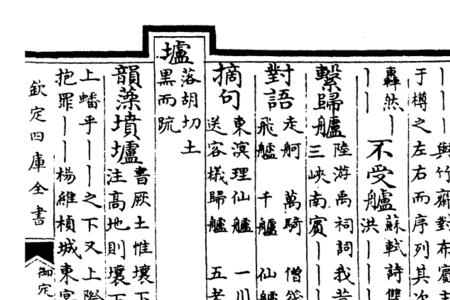 丨丨與竹齋對布賓主
于樽之左右而序列其次
轟然丨丨
不受艫
蘇軾詩雙
洪
繫歸艫
陸游禹祠詞我昔
三峽南賓
對語
走舸 萬騎 僧筏
飛艫 千艫 仙艫
摘句
東溟理仙艫 一川
送客檥歸艫 五老
壚
落胡切土
黑而疏
韻藻墳壚
書厥土惟壤下
注高地則壤下
上蟠乎丨丨之下又上際
抱罪丨丨楊維楨城東宴
欽定四庫全書
御定